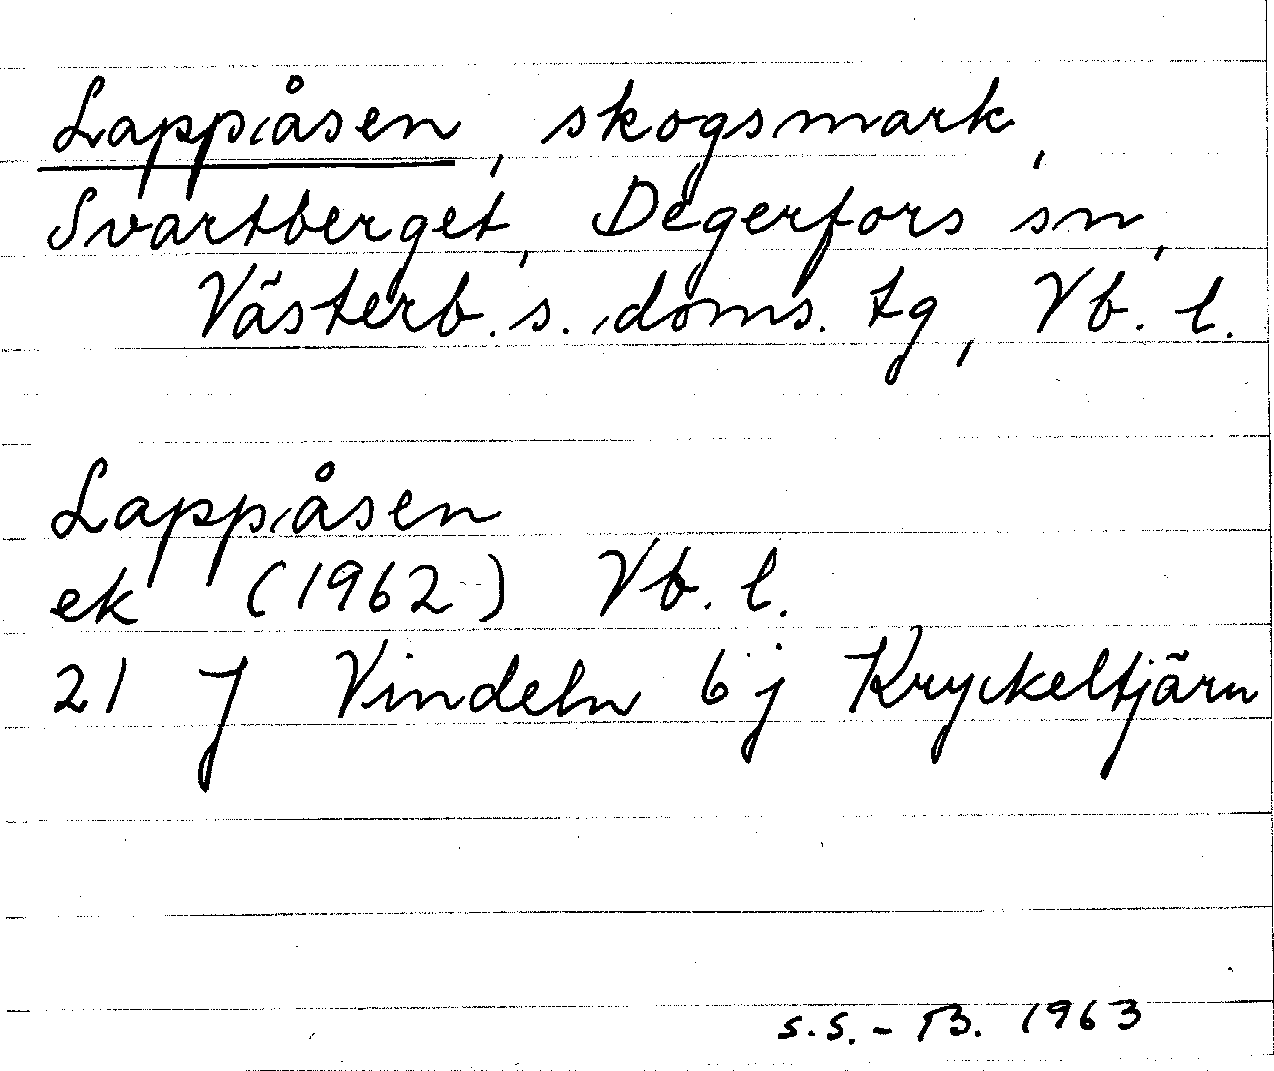 Lappåsen, skogsmark,
Svartberget, Degerfors sn,
Västerb. s. doms. tg, Vb. l.
Lappåsen
ek (1962) Vb. l.
21 J Vindeln 6 j Kryckeltjärn
S.S.-B. 1963